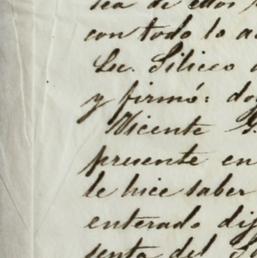 sea de ellos
con todo lo a
Lic. Siliceo
y firmó: do
Vicente G
presente en
le hice saber
enterado dij
senta del So